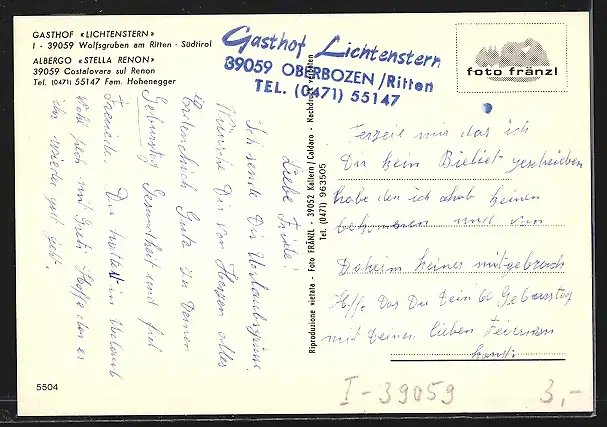 GASTHOF «LICHTENSTERN»
I - 39059 Wolfsgruben am Ritten - Südtirol
ALBERGO «STELLA RENON»
39059 Costalovara sul Renon
Tel. (0471) 55147 Fam. Hohenegger
Gasthof Lichtenstern
39059 OBERBOZEN/Ritten
TEL. (0471) 55147
foto fränzl
Riproduzione vietata - Foto FRÄNZL - 39052 Kaltern/Caldaro - Nachdruck verboten
Tel. (0471) 963505
Liebe
Ich sende Dir Urlaubsgrüße
Wünsche Dir von Herzen alles
Gute zu Deinen
60 Geburtstag Gesundheit und fiel
Freude. Du warst in Urlaub
Hoffe das es
dir wieder gut geht.
mir das ich
Dir kein geschrieben
habe den ich hab keinen
bekommen und von
Daheim keines mitgebracht
Hoffe Das Du Dein 60 Geburtstag
mit Deinen lieben Feiern
kannst.
5504
I-39059
3,-